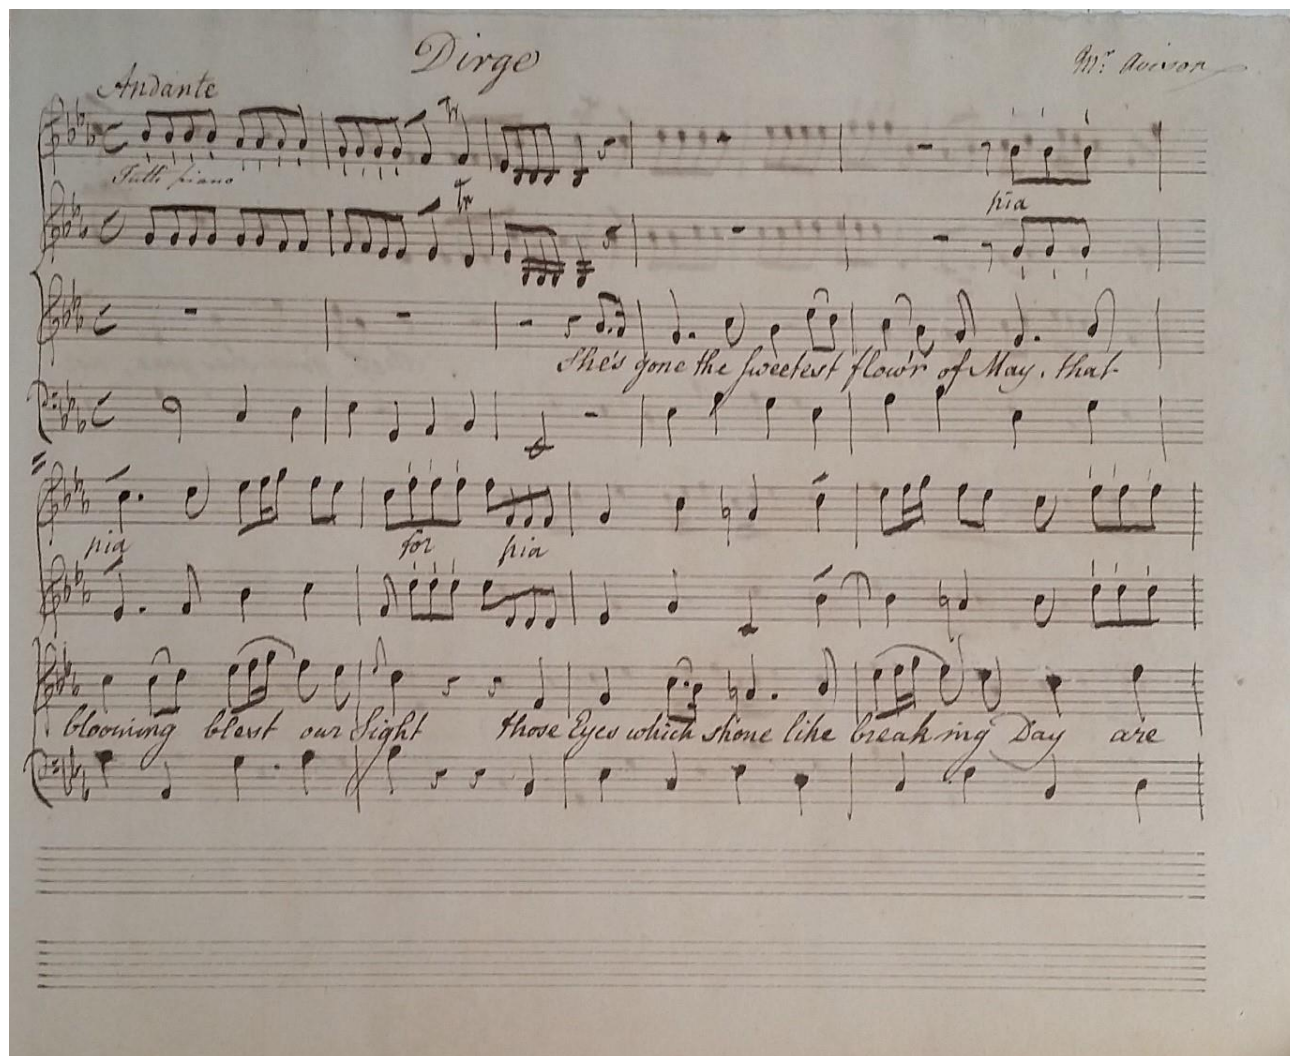 Dirge
Mr. Avison
Andante
Tr
Tutti piano
pia
Tr
She's gone the sweetest flow'r of May, that
pia for pia
blooming blest our Sight those Eyes which shone like breaking Day are